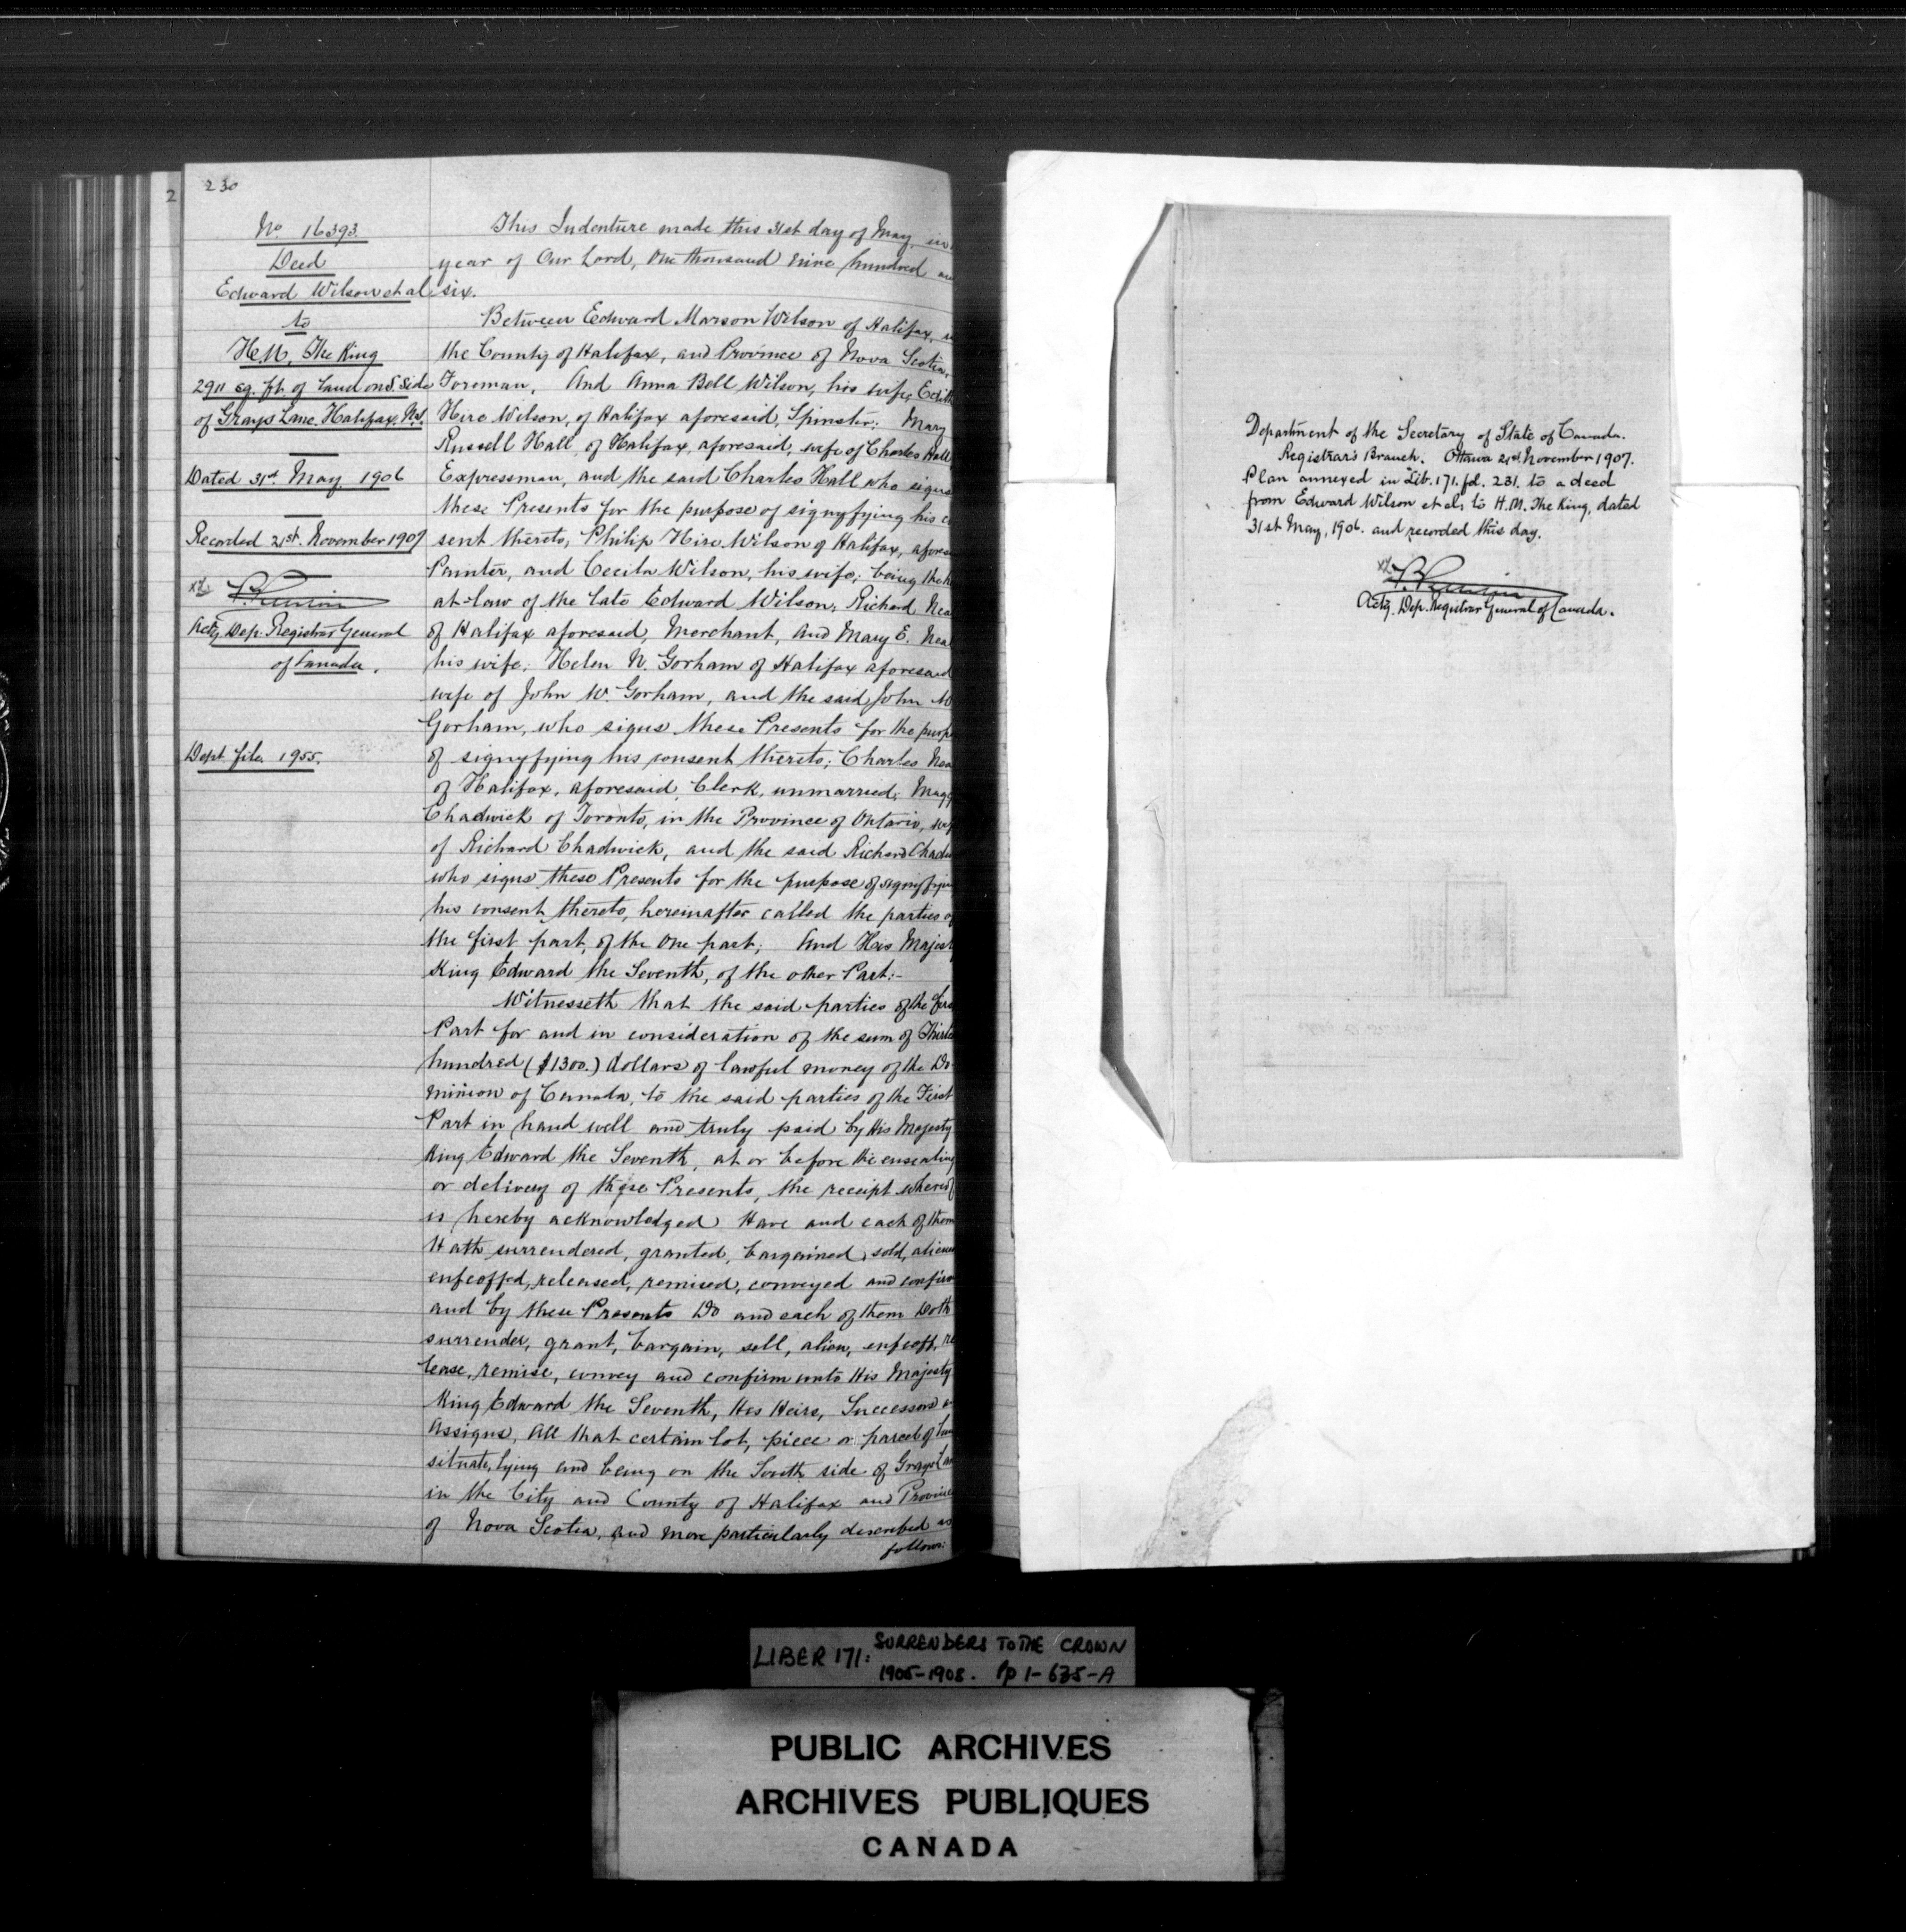 230
2
No 16393.
Deed
Edward Wilson et al
to
H.M. The King
2911 sq. ft. of land on S. side
of Grays Lane. Halifax. N.S.
Dated 31st May. 1906
Recorded 21st November 1907
Actg Dep. Registrar General
of Canada.
Dept. file 1955.
This Indenture made this 31st day of May, in
year of Our Lord, One thousand nine hundred
six.
Between Edward Marson Wilson of Halifax,
the County of Halifax, and Province of Nova Scotia,
Foreman, And Anna Bell Wilson, his wife, Edith
Hire Wilson, of Halifax aforesaid, Spinster; Mary
Russell Hall, of Halifax, aforesaid, wife of Charles Hall
Expressman, and the said Charles Hall who signs
these Presents for the purpose of signyfying his
sent thereto, Philip Hire Wilson of Halifax,
Painter, and Cecila Wilson, his wife; being the
at-law of the late Edward Wilson; Richard
of Halifax aforesaid, Merchant, and Mary E.
his wife; Helen N. Gorham of Halifax aforesaid
wife of John W. Gorham, and the said John
Gorham, who signs these Presents for the
of signyfying his consent thereto; Charles
of Halifax, aforesaid, Clerk, unmarried;
Chadwick of Toronto, in the Province of Ontario,
of Richard Chadwick, and the said Richard
who signs these Presents for the purpose of
his consent thereto, hereinafter called the parties of
the first part, of the One part; And His
King Edward the Seventh, of the other Part:-
Witnesseth that the said parties of the
Part for and in consideration of the sum of
hundred ($1300.) dollars of lawful money of the Do-
minion of Canada, to the said parties of the First
Part in hand well and truly paid by His Majesty
King Edward the Seventh, at or before the ensealing
or delivery of these Presents, the receipt whereof
is hereby acknowledged Have and each of them
Hath surrendered, granted, bargained, sold,
enfeoffed, released, remised, conveyed and
and by these Presents Do and each of them Doth
surrender, grant, bargain, sell, alien, enfeoff, re
lease, remise, convey and confirm unto His Majesty
King Edward the Seventh, His Heirs, Successors
Assigns, All that certain lot, piece or parcel of
situate, lying and being on the South side of Grays
in the City and County of Halifax and Province
of Nova Scotia, and more particularly described as
follows:
Department of the Secretary of State of Canada.
Registrar's Branch. Ottawa 21st November 1907.
Plan annexed in Lib. 171. fol. 231. to a deed
from Edward Wilson et al, to H.M. The King, dated
31st May, 1906. and recorded this day.
Actg. Dep. Registrar General of Canada.
LIBER 171: SURRENDERS TO THE CROWN
1905-1908. Pp 1-635-A
PUBLIC ARCHIVES
ARCHIVES PUBLIQUES
CANADA